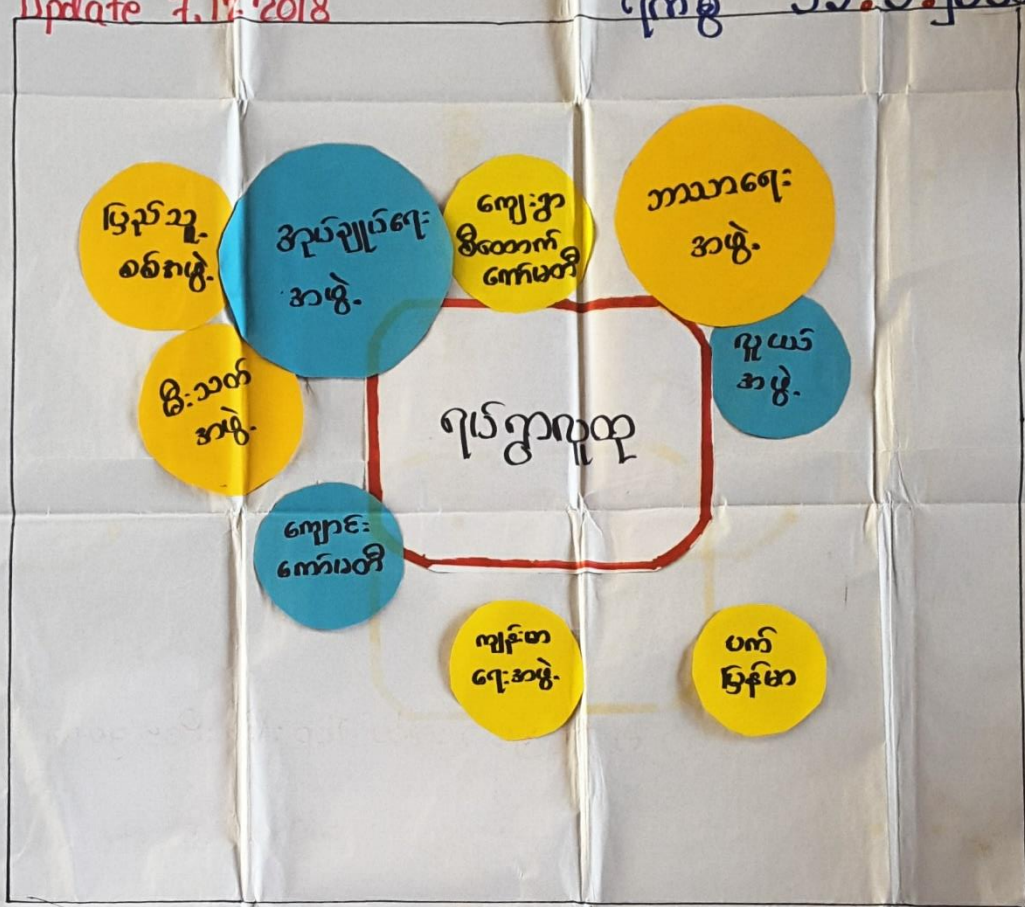 Update 7.12.2018
ပြည်သူ့
စစ်အဖွဲ့
အုပ်ချုပ်ရေး
အဖွဲ့
ကျေးရွာ
စီထောက်
ကော်မတီ
ဘာသာရေး
အဖွဲ့
မီးသတ်
အဖွဲ့
ရပ်ရွာလူထု
လူငယ်
အဖွဲ့
ကျောင်း
ကော်မတီ
ကျန်းမာ
ရေးအဖွဲ့
ပက်
မြန်မာ